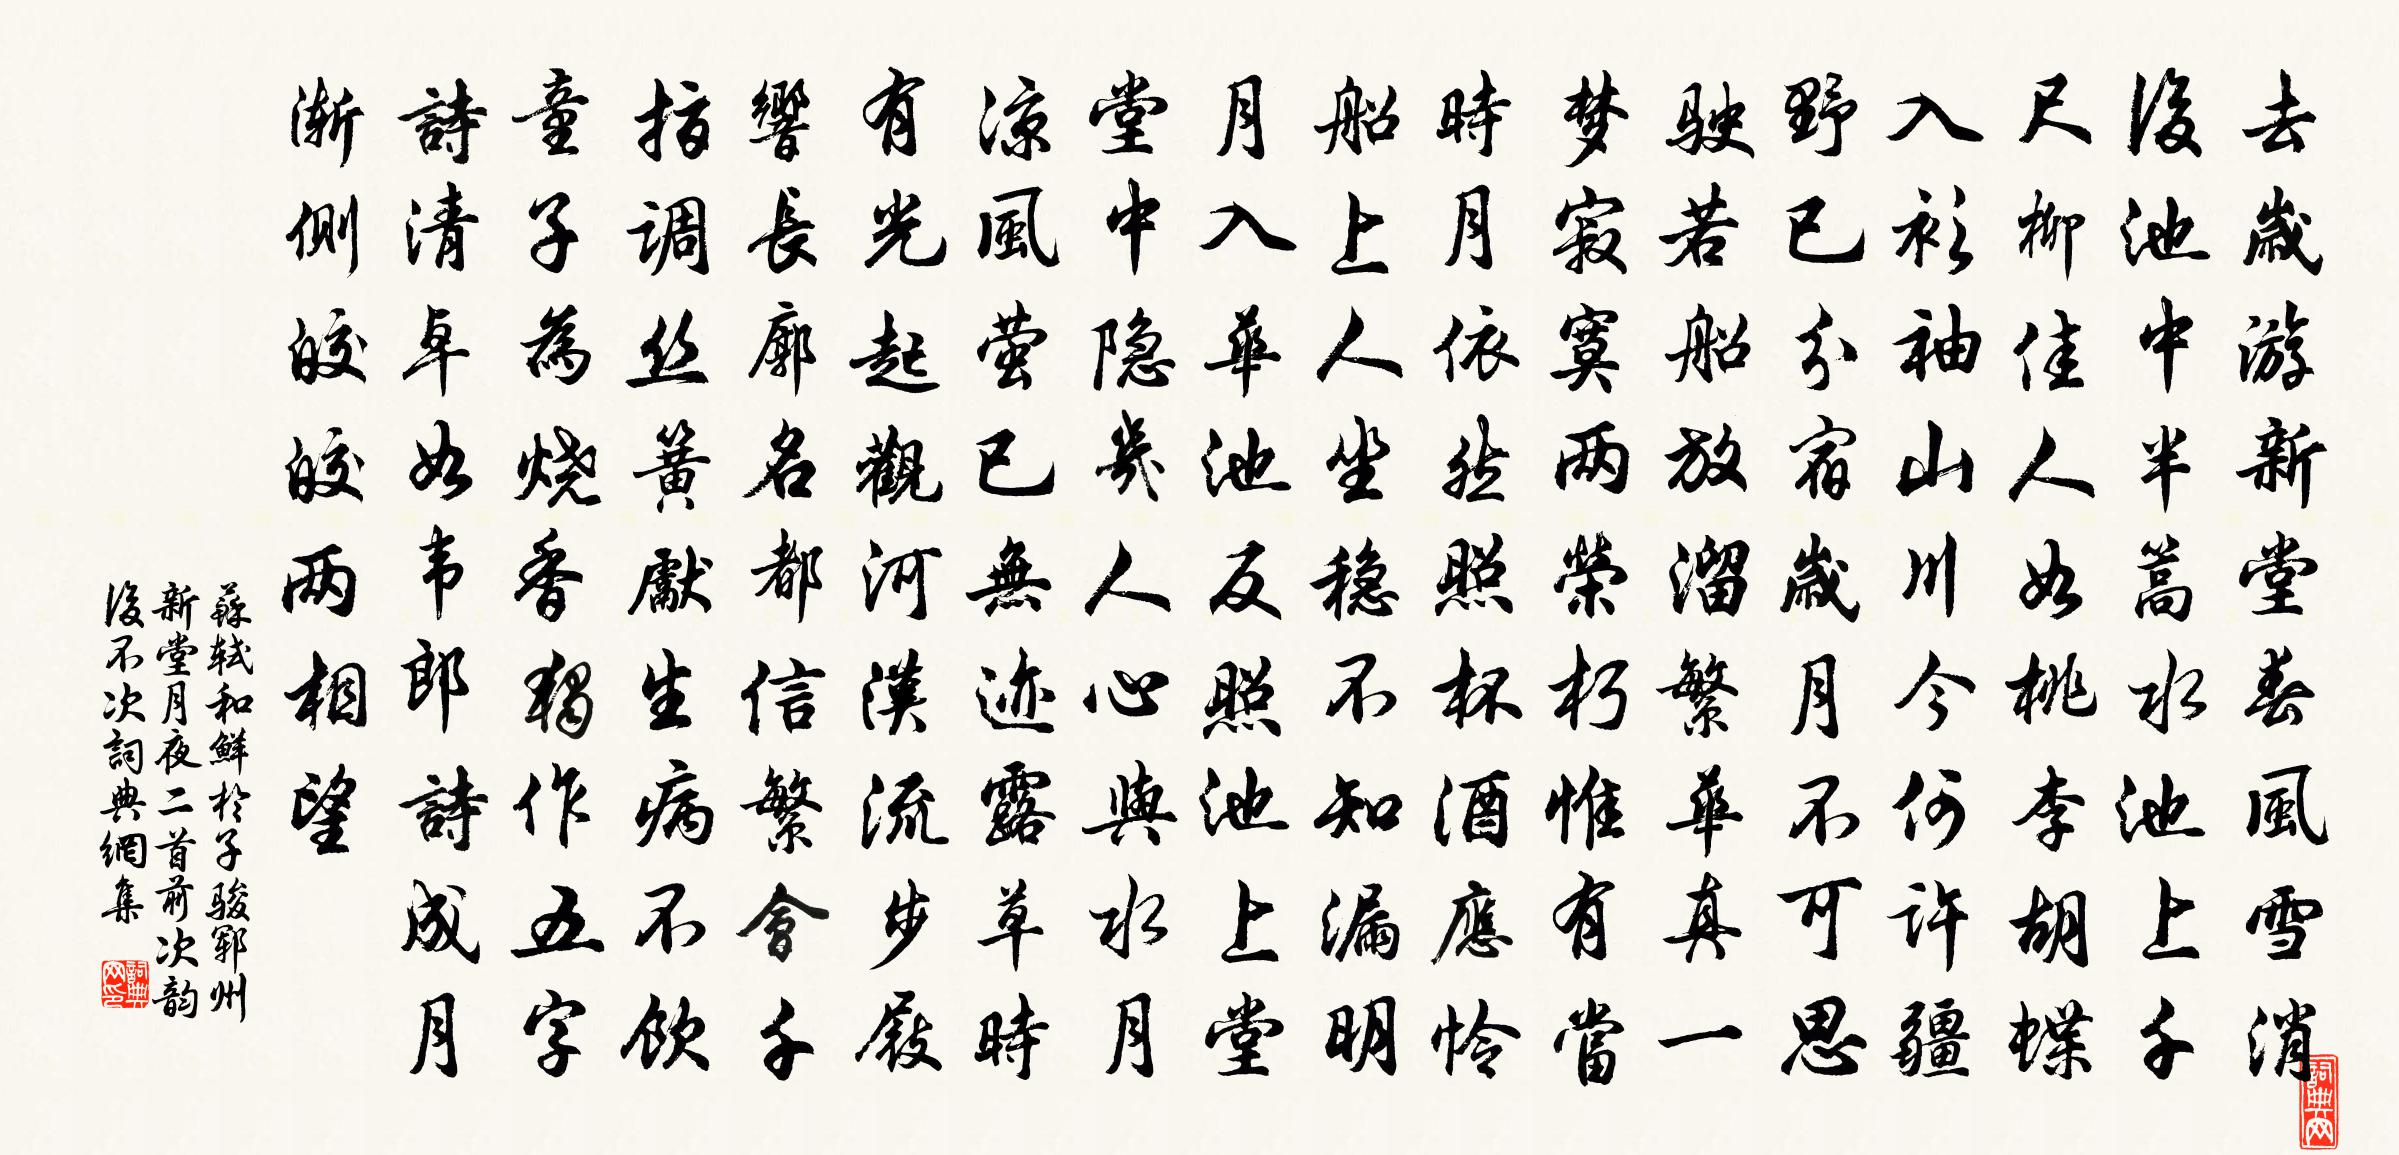 去歲游新堂春風雪消
後池中半蒿水池上千
尺柳佳人如桃李胡蝶
入衫袖山川今何許疆
野已分宿歲月不可思
駛若船放溜繁華真一
梦寂寞两榮朽惟有當
時月依然照杯酒應怜
船上人坐穏不知漏明
月入華池反照池上堂
堂中隐几人心與水月
涼風萤已無迹露草時
有光起觀河漢流步屐
響長廊名都信繁會千
指调丝簧獻生病不饮
童子為烧香獨作五字
詩清卓如韦郎詩成月
渐側皎皎两相望
蘇轼和鮮於子駿鄆州
新堂月夜二首前次韵
後不次詞典網集
詞典网印
詞典网